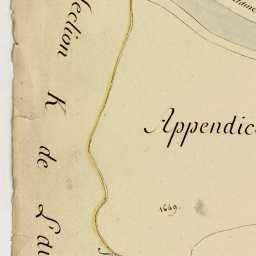 Section K de L'du
Appendic
1649.